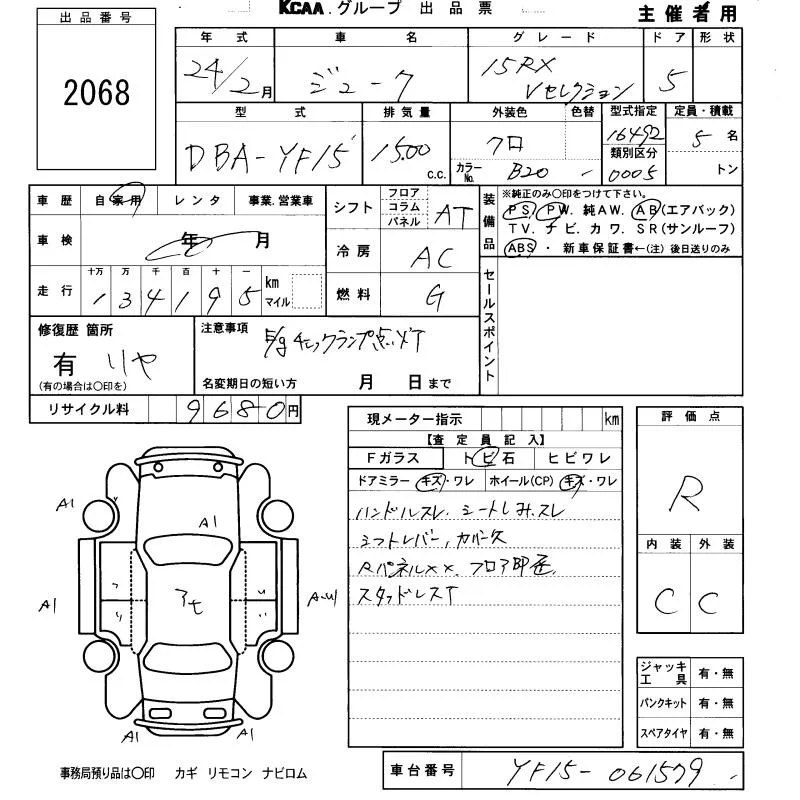 KCAA.グループ 出品票
主催者用
出品番号
2068
年式 車名 グレード ドア 形状
24/2月 ジューク 15RX Vセレクション 5
型式 排気量 外装色 色替 型式指定 定員・積載
DBA-YF15 1500 c.c. クロ 16492 5名
カラーNo. B20 - 類別区分 0005 トン
車歴 自家用 レンタ 事業.営業車
車検 年 月
走行 十万 万 千 百 十 一
134195 km マイル
シフト フロア コラム パネル AT
冷房 AC
燃料 G
装備品 ※純正のみ○印をつけて下さい。
PS. PW. 純AW. AB(エアバック)
TV. ナビ. カワ. SR(サンルーフ)
ABS・ 新車保証書←(注) 後日送りのみ
セールスポイント
修復歴 箇所
有 リヤ
(有の場合は○印を)
注意事項
E/gチェックランプ点灯
名変期日の短い方 月 日まで
リサイクル料 9680円
現メーター指示 km
【査定員記入】
Fガラス トビ石 ヒビワレ
ドアミラー キズ・ワレ ホイール(CP) キズ・ワレ
ハンドルスレ、シートしみ、スレ
シフトレバー、カバー欠
RパネルXX、フロア
スタッドレスT
評価点
R
内装 外装
C C
A1
A1
A1
A1
A1
A1
ジャッキ工具 有・無
パンクキット 有・無
スペアタイヤ 有・無
事務局預り品は○印 カギ リモコン ナビロム
車台番号 YF15-061579